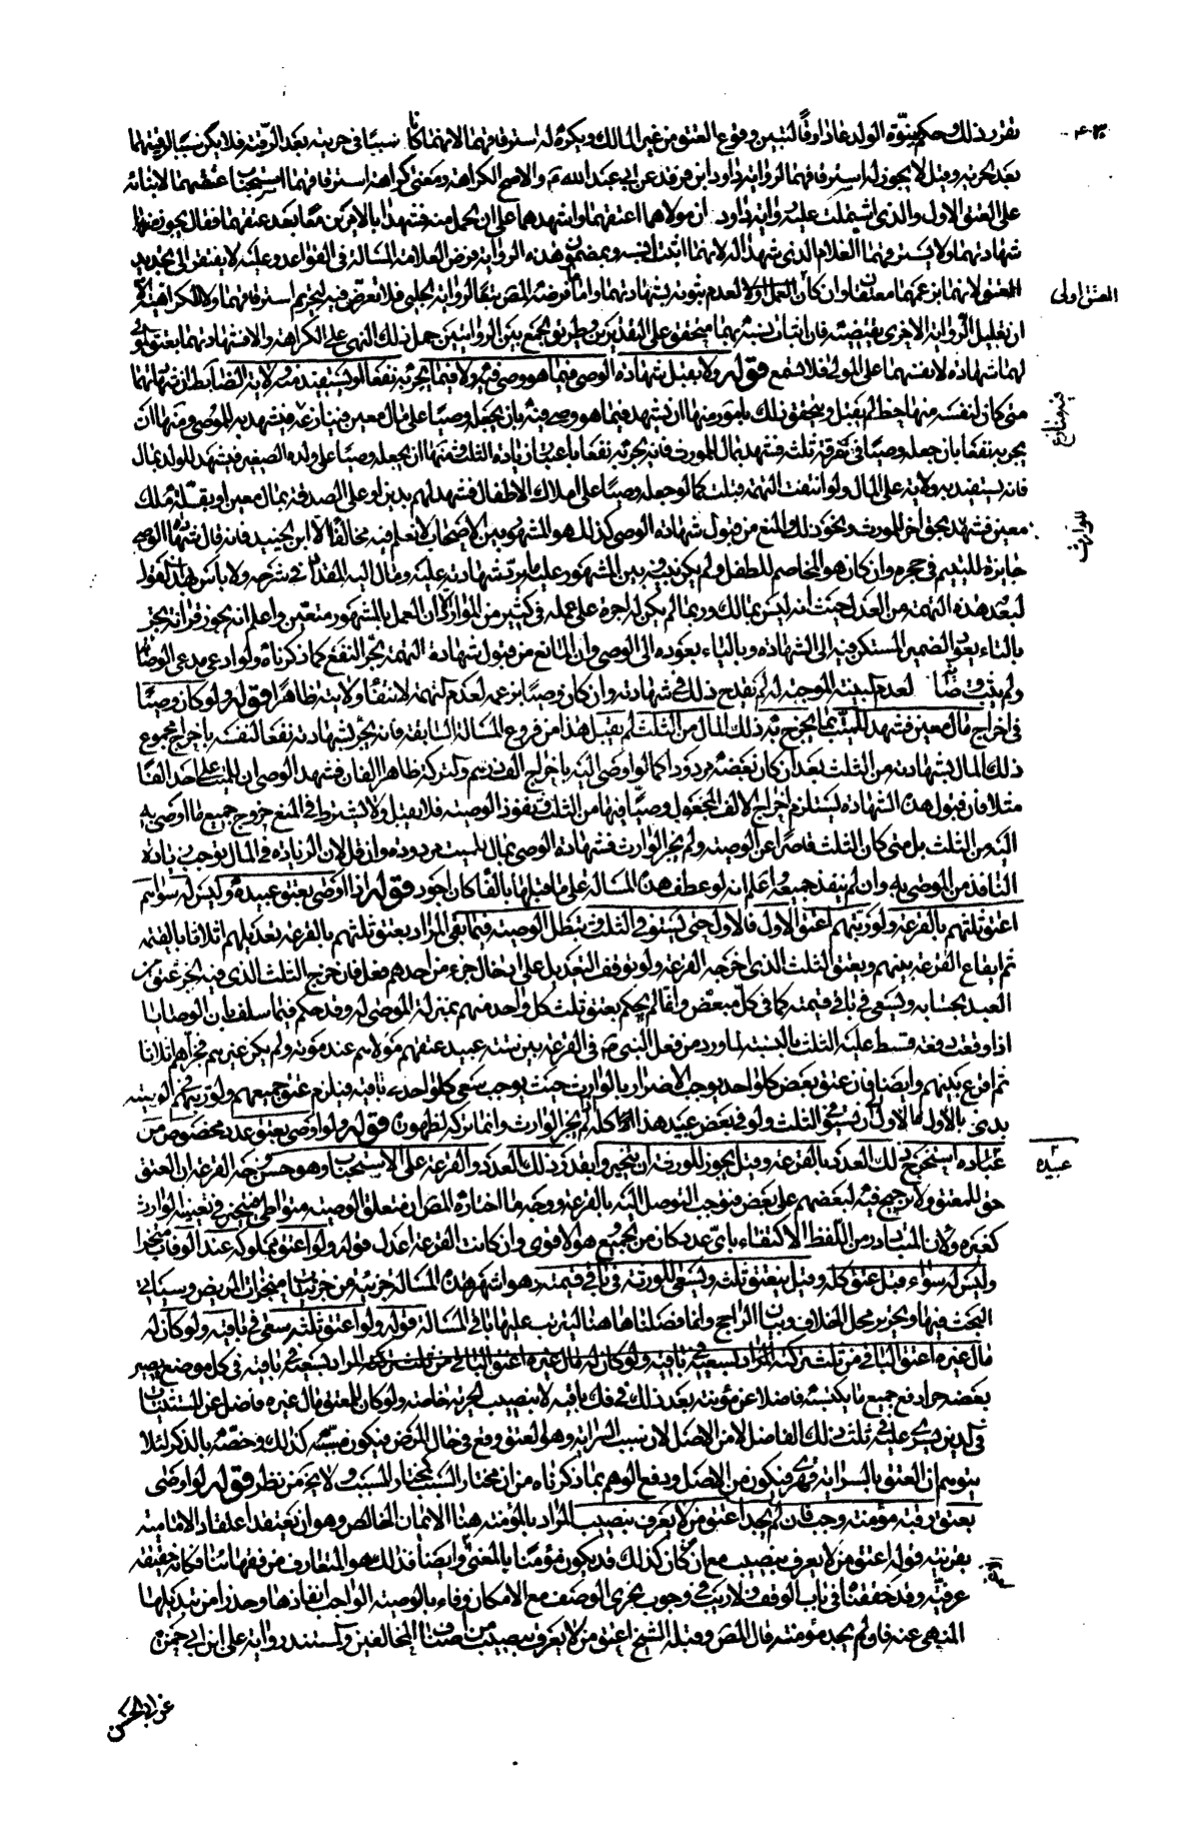 تقرر ذلك وحكم بنوة الولد عاد رقا لتبين وقوع العتق من غير المالك ويكره له استرقاقهما لانهما كانا سببا في حريته بعد الرقية فلا يكن سببا لرقيتهما
بعد الحرية وقيل لا يجوز له استرقاقهما لرواية داود ابن فرقد عن ابي عبد الله ع والاصح الكراهة ومعنى كراهة استرقاقهما استحباب عتقهما لابتنائه
على العتق الاول والذي اشتملت عليه رواية داود ان مولاهما اعتقهما واشهدهما على ان الحمل منه فشهدا بالامرين معا بعد عتقهما فقال يجوز
شهادتهما ولا يسترقهما الغلام الذي شهدا له لانهما اثبتا نسبه وبمضمون هذه الرواية فرض العلامة المسالة في القواعد وعليه لا يفتقر الى تجديد
العتق لانهما بزعمهما معتقان وان كان العمل اولا لعدم ثبوته بشهادتهما واما فرضه المص تبعا لرواية الحلبي فلا تعرض فيه لتحريم استرقاقهما ولا لكراهته
ان تعليل الرواية الاخرى يقتضيه فان اثبات نسبه بهما متحقق على التقديرين وطريق الجمع بين الروايتين حمل ذلك النهي على الكراهة والا فشهادتهما بعتق المولى
لهما شهادة لانفسهما على المولى فلا تسمع قوله ولا يقبل شهادة الوصي فيما هو وصي فيه ولا فيما يجر به نفعا او يستفيد منه ولاية الضابط ان شهادتهما
متى كان لنفسه منها حظ لم يقبل ويتحقق ذلك بامور منها ان يشهد فيما هو وصي فيه بان يجعل وصيا على مال معين فينازع فيه فيشهد به للموصي ومنها ان
يجر به نفعا بان جعله وصيا في تفرقة ثلثه فشهد بمال للمورث فانه يجر به نفعا باعتبار زيادة الثلث ومنها ان يجعله وصيا على ولده الصغير فيشهد للولد بمال
فانه يستفيد به ولاية على المال ولو انتفت التهمة قبلت كما لو جعله وصيا على املاك الاطفال فشهد لهم بدين او على الصدقة بمال معين او بقسمة ملك
معين فشهد بحق اخر للمورث ونحو ذلك والمنع من قبول شهادة الوصي كذلك هو المشهور بين الاصحاب لا نعلم فيه مخالفا الا ابن الجنيد فانه قال شهادة الوصي
جايزة لليتيم في حجره وان كان هو المخاصم للطفل ولم يكن بينه وبين المشهود عليه ما يرد شهادته عليه ومال اليه المقداد في شرحه ولا باس بهذا القول
لبعد هذه التهمة من العدل حيث انه ليس بمالك وربما لم يكن له اجرة على عمله في كثير من الموارد الا ان العمل بالمشهور متعين واعلم انه يجوز قرائة يجر
بالتاء بعود الضمير المستكن فيه الى الشهادة وبالياء بعوده الى الوصي وان المانع من قبول شهادة التهمة بجر النفع كما ذكرناه ولو ادعى مدعي الوصاية
ولم يثبت وصايته لعدم البينة الموجبة له لم يقدح ذلك في شهادته وان كان وصيا بزعمه لعدم التهمة لانتفاء ولايته ظاهرا قوله ولو كان وصيا
في اخراج مال معين فشهد للميت بما يخرج به ذلك المال من الثلث لم يقبل هذا من فروع المسالة السابقة فانه يجر بشهادته نفعا لنفسه باخراج مجموع
ذلك المال بشهادته من الثلث بعد ان كان بعضه مردودا كما لو اوصى اليه باخراج الف درهم والتركة ظاهرا الفان فشهد الوصي ان للميت على احد الفا
مثلا فان قبول هذه الشهادة يستلزم اخراج الالف المجعول وصيا فيها من الثلث بنفوذ الوصية فلا يقبل ولا يشترط في المنع خروج جميع ما اوصى به
اليه من الثلث بل متى كان الثلث قاصرا عن الوصية ولم يجز الوارث فشهادة الوصي بمال للميت مردودة وان قل لان الزيادة في المال توجب زيادة
النافذ من الموصى به وان لم ينفذ جميعه واعلم انه لو عطف هذه المسالة على ما قبلها بالفا كان اجود قوله اذا اوصى بعتق عبيده وليس له سواهم
اعتق ثلثهم بالقرعة ولو رتبهم اعتق الاول فالاول حتى يستوفي الثلث وتبطل الوصية فيما بقي المراد بعتق ثلثهم بالقرعة تعديلهم اثلاثا بالقيمة
ثم ايقاع القرعة بينهم ويعتق الثلث الذي اخرجه القرعة ولو توقف التعديل على ادخال جزء من احدهم فعل فان خرج الثلث الذي فيه الجزء عتق من
العبد بحسابه ويسعى في باقي قيمته كما في كل مبعض وانما لم يحكم بعتق ثلث كل واحد منهم بمنزلة الموصى له وقد حكم فيما سلف بان الوصايا
اذا وقعت دفعة قسط عليها الثلث بالنسبة لما ورد من فعل النبي ص في القرعة بين ستة عبيد عتقهم مولاهم عند موته ولم يكن غيرهم فجزاهم اثلاثا
ثم اقرع بينهم وايضا فان عتق بعض كل واحد يوجب الاضرار بالوارث حيث يوجب سعي كل واحد في باقيه فيلزم عتق جميعهم ولو رتبهم في الوصية
بدئ بالاول فالاول الى ان يستوفي الثلث ولو في بعض عبيد هذا كله اذا لم يجز الوارث وانما تركه لظهوره قوله ولو اوصى بعتق عدد مخصوص من
عباده استخرج ذلك العدد بالقرعة وقيل يجوز للورثة ان يتخير وابقدر ذلك العدد والقرعة على الاستحباب وهو حسن وجه القرعة ان العتق
حق للمعتق ولا ترجيح فيه لبعضهم على بعض فتوجب التوصل اليه بالقرعة ووجه ما اختاره المص ان متعلق الوصية متواطي فيتخير في تعيينه الوارث
كغيره ولان المتبادر من اللفظ الاكتفاء باي عدد كان من الجميع وهو الاقوى وان كانت القرعة اعدل قوله ولو اعتق مملوكه عند الوفاة منجزا
وليس له سواه قيل عتق كله وقيل ينعتق ثلثه ويسعى للورثة في باقي قيمته وهو اشهر هذه المسالة جزئية من جزئيات منجزات المريض وسياتي
البحث فيها وتحرير محل الخلاف وبيان الراجح وانما فصلناها هنا ليترتب عليها باقي المسالة قوله ولو اعتق ثلثه سعى في باقيه ولو كان له
مال غيره اعتق الباقي من ثلث تركته المراد بسعيه في باقيه في كل موضع يصير
بعضه حرا دفع جميع ما يكتسبه فاضلا عن مؤنته بعد ذلك في فك باقيه لا بنصيب الحرية خاصة ولو كان للمعتق مال غيره فاضل عن المستثنيات
في الدين يسري عليه في ثلث ذلك الفاضل لا من الاصل لان سبب السراية وهو العتق وقع في حال المرض فيكون مسببه كذلك وخصه بالذكر لئلا
يتوهم ان العتق بالسراية قهري فيكون من الاصل ودفع الوهم بما ذكرناه من ان مختار السبب كمختار المسبب ولا يخ من نظر قوله لو اوصى
بعتق رقبة مؤمنة وجب فان لم يجد اعتق من لا يعرف بنصب المراد بالمؤمنة هنا الايمان الخالص وهو ان يعتقد اعتقاد الامامية
بقرينة قوله اعتق من لا يعرف بنصب مع ان كان كذلك قد يكون مؤمنا بالمعنى وايضا فذلك هو المتعارف من فقهائنا فكانه حقيقة
عرفية وقد حققنا في باب الوقف ولا ريب في وجوب تحري الوصف مع الامكان وفاء بالوصية الواجب انفاذها وحذرا من تبديلها
المنهي عنه فلو لم يجد مؤمنة قال المص وقبله الشيخ اعتق من لا يعرف بنصب من اصناف المخالفين والمستند رواية علي ابن ابي حمزة
العتق اولى
فيه منازع
للوارث
عبيده
عن ابي الحسن